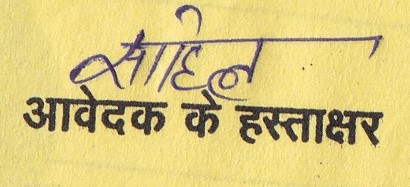 साहिल
आवेदक के हस्ताक्षर